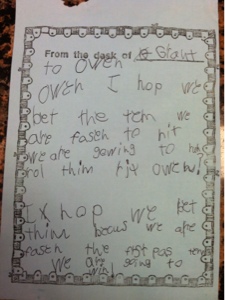 From the desk of Grant
to Owen
Owen I hop we
bet the tem we
are fasen to hit
we are gowing to
rol thim Owen!
I hop we bet
thim becus we are
fasen the fist pas
We are going to
win!